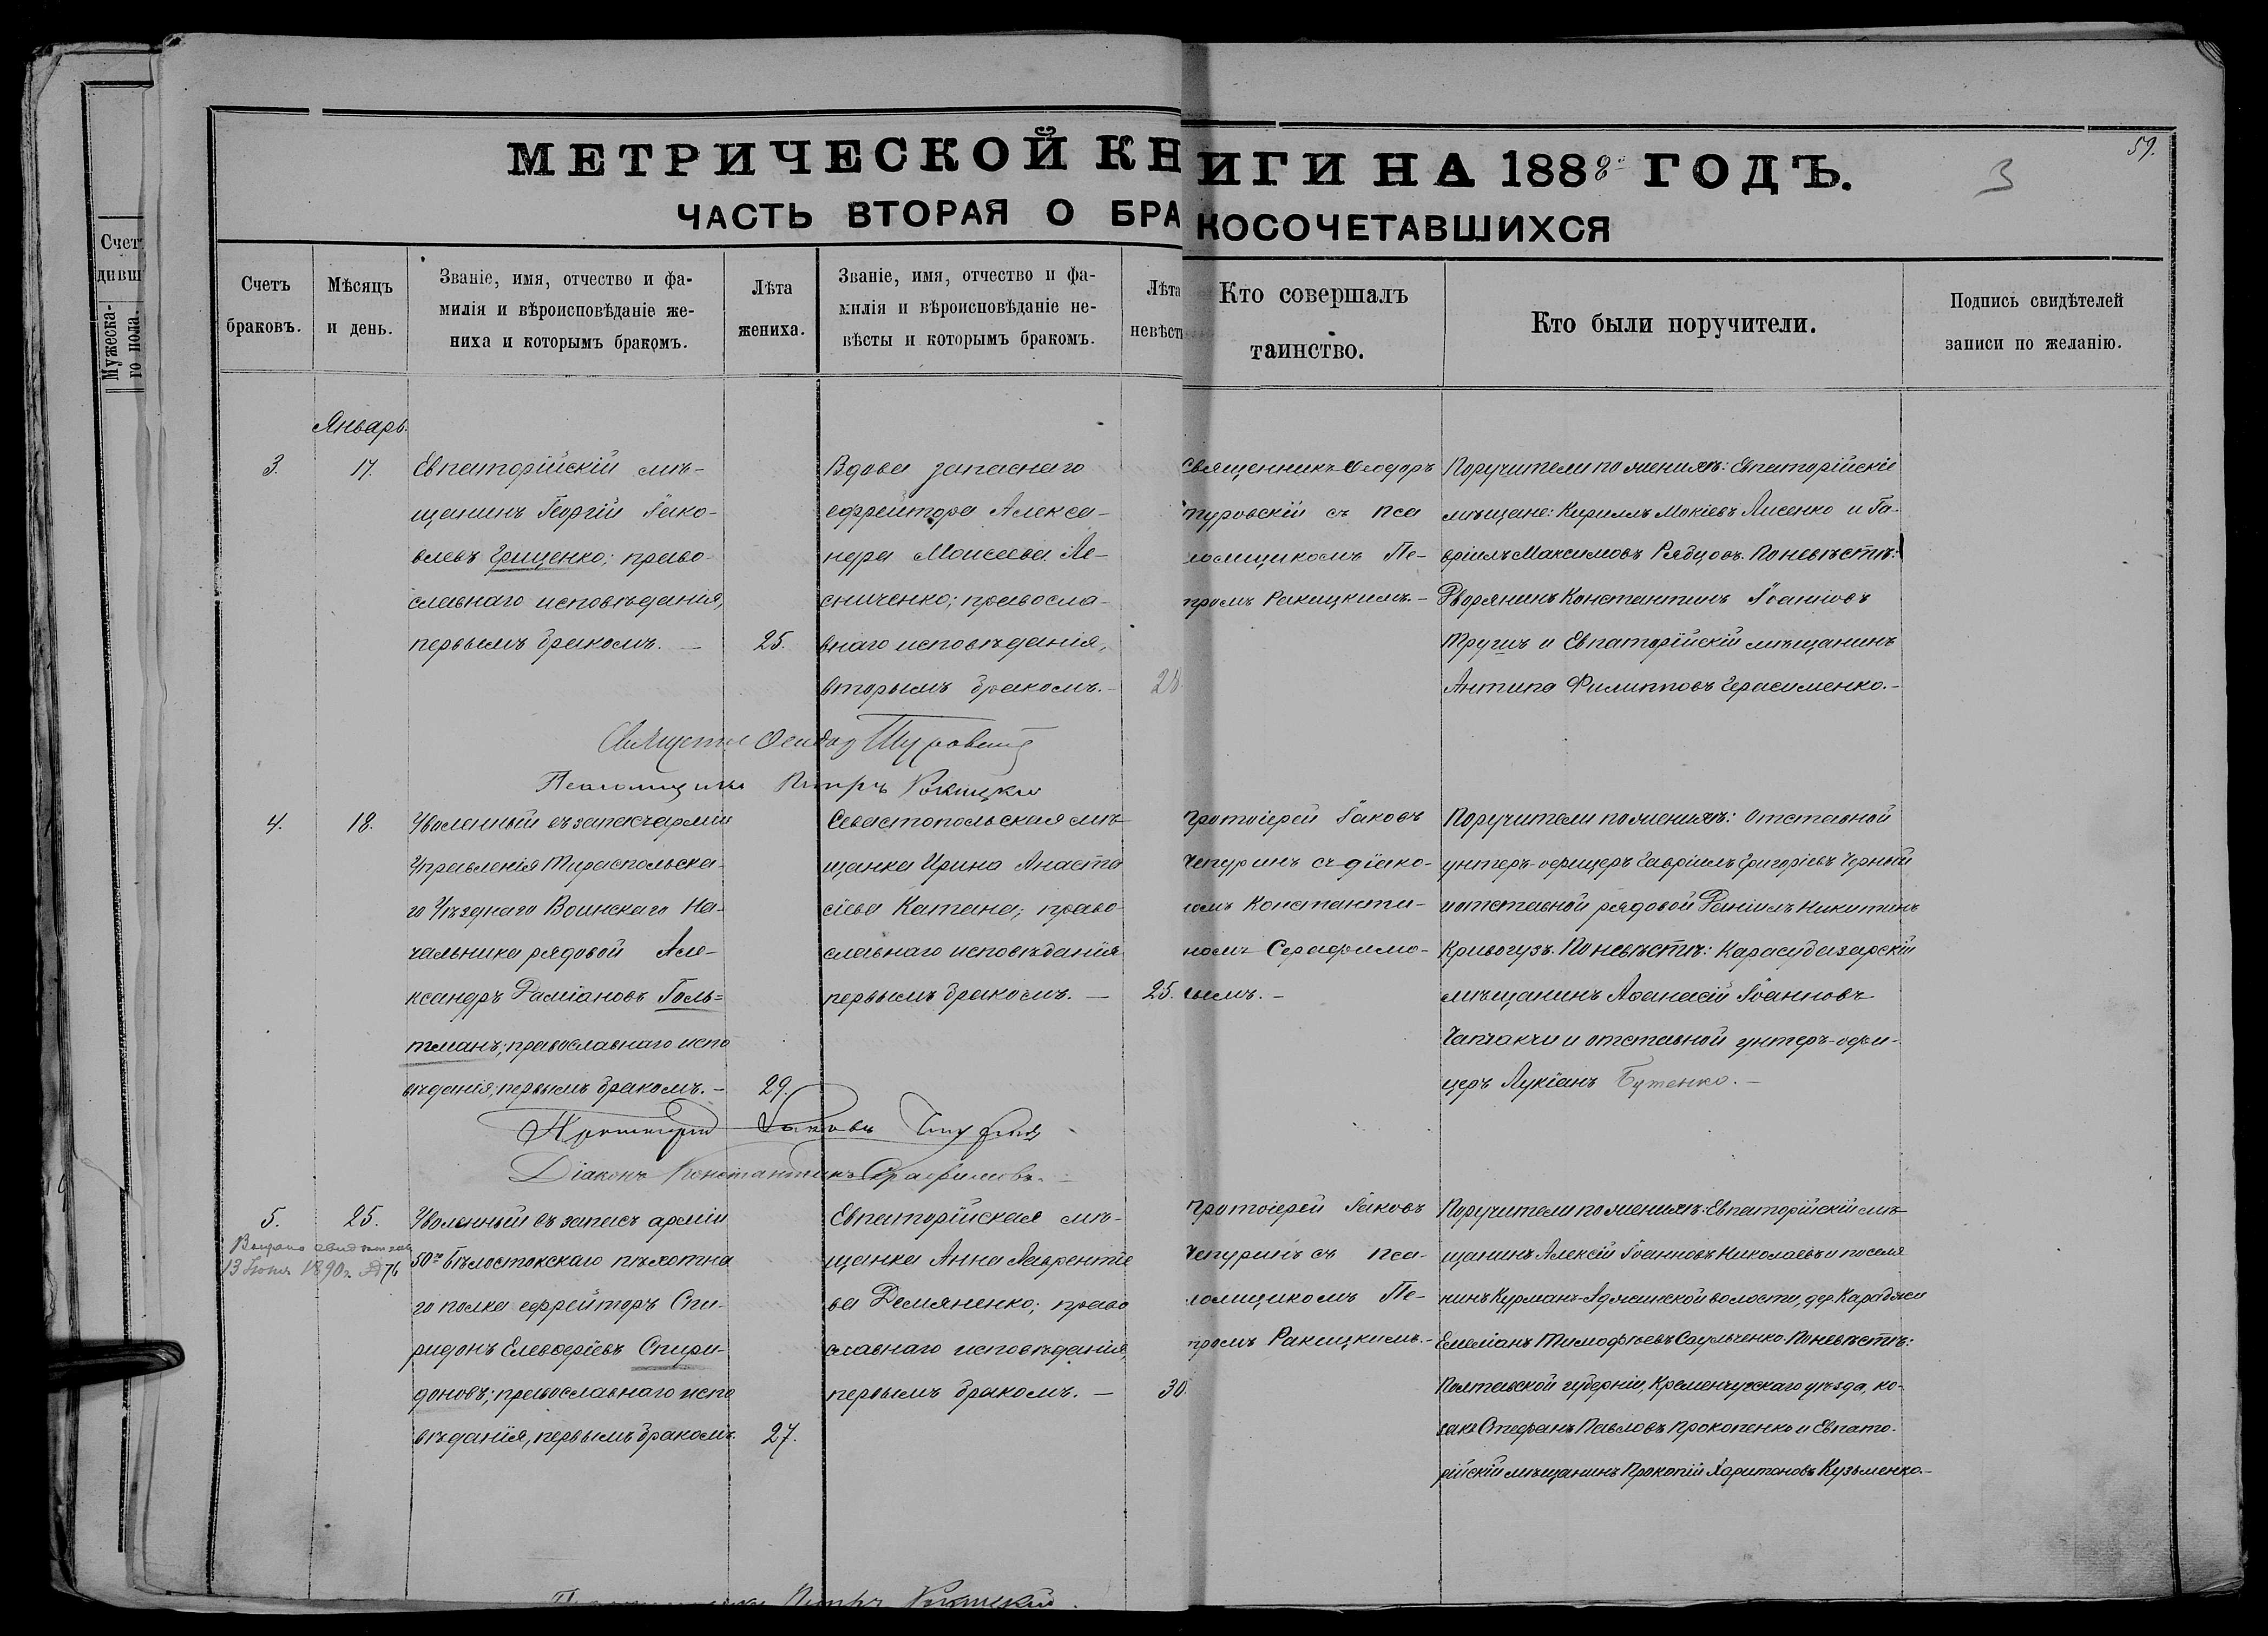 Счет
дивш
Мужеска-
го пола.
МЕТРИЧЕСКОЙ КНИГИ НА 1888 ГОДЪ.
59.
3
ЧАСТЬ ВТОРАЯ О БРАКОСОЧЕТАВШИХСЯ
Счетъ
браковъ.
Мѣсяцъ
и день.
Званіе, имя, отчество и фа-
милія и вѣроисповѣданіе же-
ниха и которымъ бракомъ.
Лѣта
жениха.
Званіе, имя, отчество и фа-
милія и вѣроисповѣданіе не-
вѣсты и которымъ бракомъ.
Лѣта
невѣсты
Кто совершалъ
таинство.
Кто были поручители.
Подпись свидѣтелей
записи по желанію.
Январь.
3.
17.
Евпаторійскій мѣ-
щанинъ Георгій Іако-
влевъ Грищенко; право-
славнаго исповѣданія,
первымъ бракомъ. —
25.
Вдова запаснаго
ефрейтора Алекса-
ндра Моисеева Ле-
сниченко; правосла-
внаго исповѣданія,
вторымъ бракомъ. -
28.
Священникъ Ѳеодоръ
Туровскій съ пса
ломщикомъ Пе-
тромъ Ракицкимъ. -
Поручители по женихѣ: Евпаторійскіе
мѣщане: Кириллъ Мокіевъ Лисенко и Га-
вріилъ Максимовъ Рябцовъ. По невѣстѣ:
Дворянинъ Константинъ Іоанновъ
Тругиъ и Евпаторійскій мѣщанинъ
Антипа Филипповъ Герасименко. -
Священникъ Ѳеодоръ Туровскій
Псаломщикъ Петръ Ракицкій
4.
18.
Уволенный въ запасъ арміи
Управленія Тираспольска-
го Уѣзднаго Воинскаго На-
чальника рядовой Але-
ксандръ Даміановъ Голь-
тманъ; православнаго испо
вѣданія, первымъ бракомъ. -
29.
Севастопольская мѣ-
щанка Ирина Анаста
сіева Катана; право
славнаго исповѣданія
первымъ бракомъ. —
25.
Протоіерей Іаковъ
Чепуринъ съ діако-
номъ Константи-
номъ Серафимо-
вымъ. -
Поручители по женихѣ: Отставной
унтеръ-офицеръ Гавріилъ Григоріевъ Черный
и отставной рядовой Даніилъ Никитинъ
Кривогузъ. По невѣстѣ: Карасубазарскій
мѣщанинъ Аѳанасій Іоанновъ
Чапчакчи и отставной унтеръ-офи-
церъ Лукіанъ Бутенко. -
Протоіерей Іаковъ Чепуринъ
Діаконъ Константинъ Серафимовъ.
5.
25.
Выдано
13 Іюня 1890 г. № 76
Уволенный въ запасъ арміи
50го Бѣлостокскаго пѣхотна
го полка ефрейторъ Спи-
ридонъ Елевѳеріевъ Спири-
доновъ; православнаго испо
вѣданія, первымъ бракомъ
27.
Евпаторійская мѣ-
щанка Анна Лаврентіе
ва Демяненко; право
славнаго исповѣданія,
первымъ бракомъ. —
30.
Протоіерей Іаковъ
Чепуринъ съ пса-
ломщикомъ Пе-
тромъ Ракицкимъ. -
Поручители по женихѣ: Евпаторійскій мѣ-
щанинъ Алексій Іоанновъ Николаевъ и поселя
нинъ Курманъ-Аджинской волости, дер. Караджи
Емеліанъ Тимофѣевъ Саульченко. По невѣстѣ:
Полтавской губерніи, Кременчугскаго уѣзда, ко-
закъ Стефанъ Павловъ Прокопенко и Евпато-
рійскій мѣщанинъ Прокопій Харитоновъ Кузьменко. -
Петръ Ракицкій